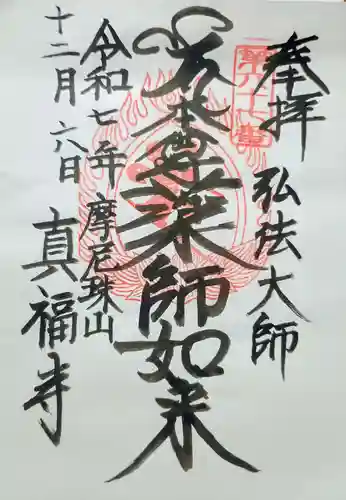 奉拝
弘法大師
本尊薬師如来
令和七年
摩尼珠山
十二月六日
真福寺